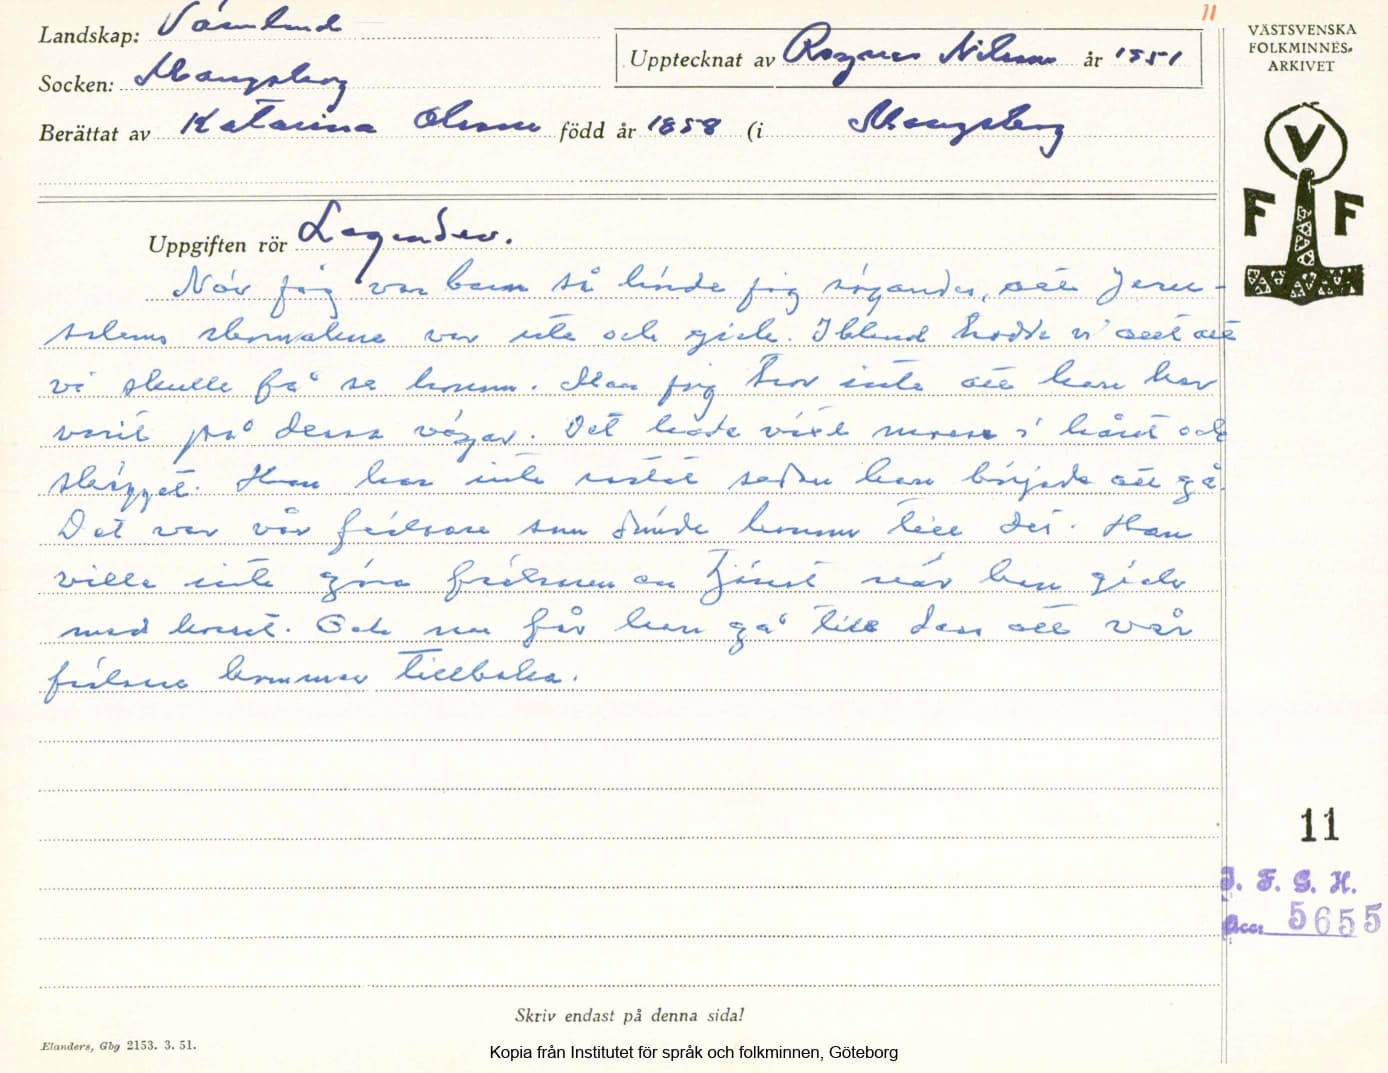 11
Landskap: Värmland
Socken: Mangskog
Upptecknat av Ragnar Nilsson år 1951
Berättat av Katarina Olsson född år 1858 (i Mangskog
VÄSTSVENSKA
FOLKMINNES-
ARKIVET
V
F F
Uppgiften rör Legender.
När jag var barn så hörde jag sägandes, att Jeru-
salems skomakare var ute och gick. Ibland trodde vi att
vi skulle få se honom. Men jag tror inte att han har
varit på dessa vägar. Det hade växt mossa i håret och
skägget. Han har inte rastat sedan han började att gå.
Det var vår frälsare som dömde honom till det. Han
ville inte göra frälsaren en tjänst när han gick
med korset. Och nu får han gå till dess att vår
frälsare kommer tillbaka.
11
I. F. G. H.
Acc. 5655
Skriv endast på denna sida!
Elanders, Gbg 2153. 3. 51.
Kopia från Institutet för språk och folkminnen, Göteborg